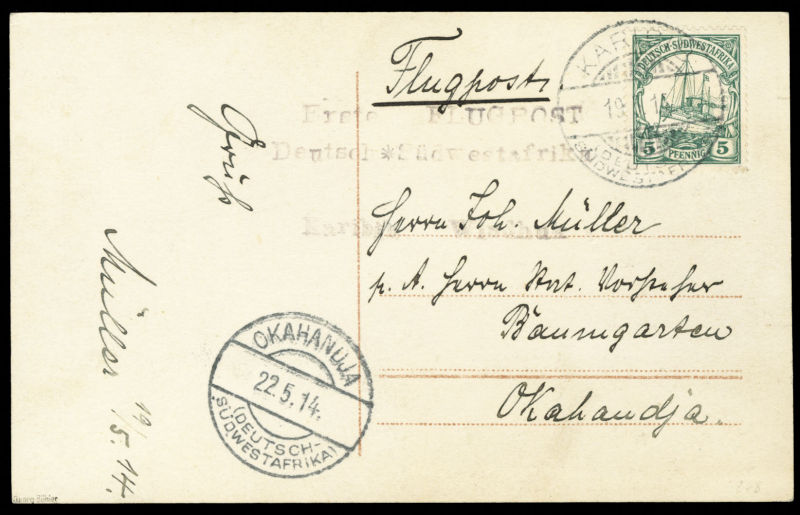 Flugpost.
Erste FLUGPOST
Deutsch*Südwestafrika
Karibib Windhuk
KARIBIB
19. 14
(DEUTSCH-
SÜDWESTAFRIKA)
DEUTSCH-SÜDWESTAFRIKA
5 PFENNIG 5
Herrn Joh. Müller
p. A. Herrn Stat. Vorsteher
Baumgarten
Okahandja.
Gruß
Müller 19/5.14.
OKAHANDJA
22.5.14.
(DEUTSCH-
SÜDWESTAFRIKA)
Georg Bühler